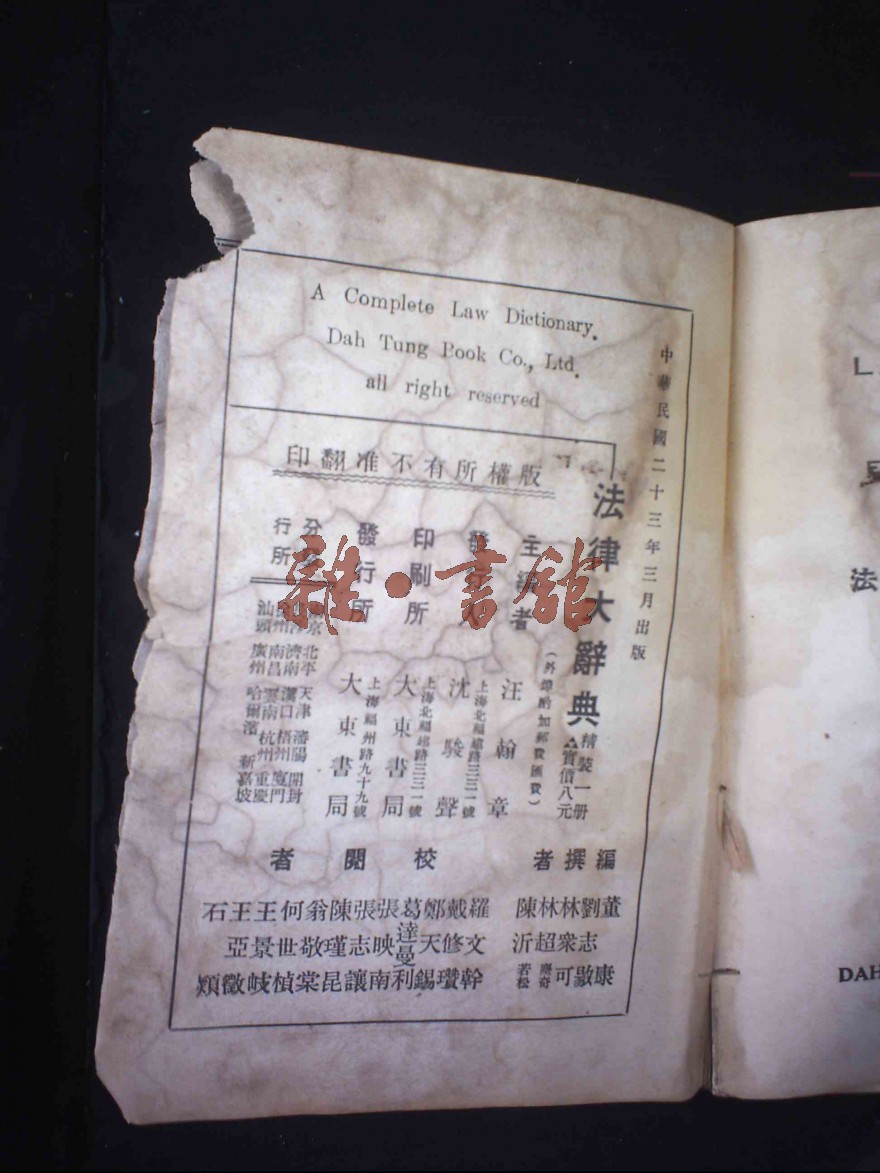 A Complete Law Dictionary.
Dah Tung Book Co., Ltd.
all right reserved
中華民國二十三年三月出版
版權所有不准翻印
法律大辭典
精裝一册
實價八元
(外埠酌加郵費匯費)
主編者
汪翰章
發
上海北福建路三三一號
沈駿聲
印刷所
上海北福建路三三一號
大東書局
發行所
上海福州路九十九號
大東書局
分發
行所
京 北平 天津 瀋陽 開封
濟南 漢口 梧州 廈門
州 南昌 雲南 杭州 重慶
汕頭 廣州 哈爾濱 新嘉坡
編撰者
董康
劉志敭
林衆可
林超
陳沂
若松
校閱者
羅文幹
戴修瓚
鄭天錫
葛達曼利
張映南
張志讓
陳瑾昆
翁敬棠
何世楨
王景岐
王亞徵
石熲
法
DAH